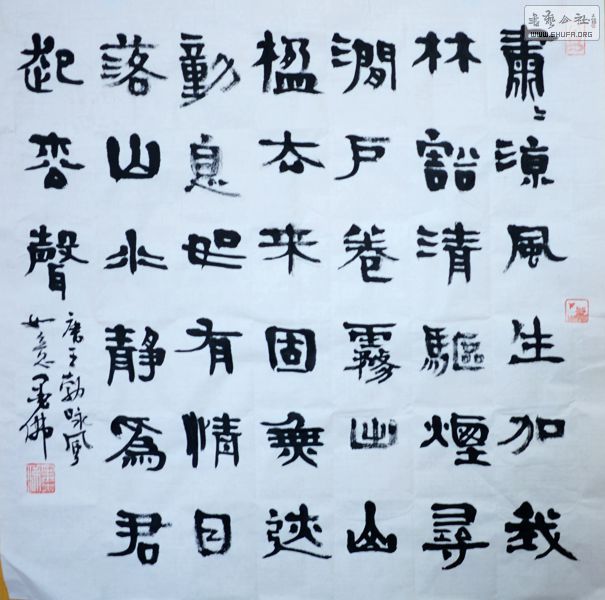 肅〻涼風生加我
林豁清驅煙尋
澗戶卷霧出山
楹去来固無迹
動息如有情日
落山水靜為君
起枩聲
唐王勃咏風
如意墨佛
WWW.SHUFA.ORG